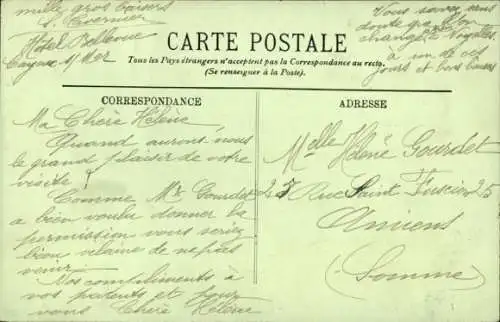 mille gros baisers
S. Tavernier
Hotel Bellevue
Cayeux s/Mer
Vous savez sans
doute que l'on
change de
à un de ces
jours et bons baisers
CARTE POSTALE
Tous les Pays étrangers n'acceptent pas la Correspondance au recto.
(Se renseigner à la Poste).
CORRESPONDANCE
Ma Chère Hélène,
Quand aurons-nous
le grand plaisir de votre
visite ?
Comme Mr Gourdet
a bien voulu donner la
permission vous seriez
bien vilaine de ne pas
venir.
Nos compliments à
vos parents et pour
vous Chère Hélène
ADRESSE
Melle Hélène Gourdet
25 Rue Saint Fuscien 25
Amiens
(Somme)